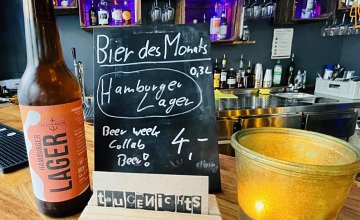 Bier des Monats
0,3L
Hamburger
Lager
Beer week
Collab
Beer!
4,-
tauGENichts
HAMBURGER
LAGER